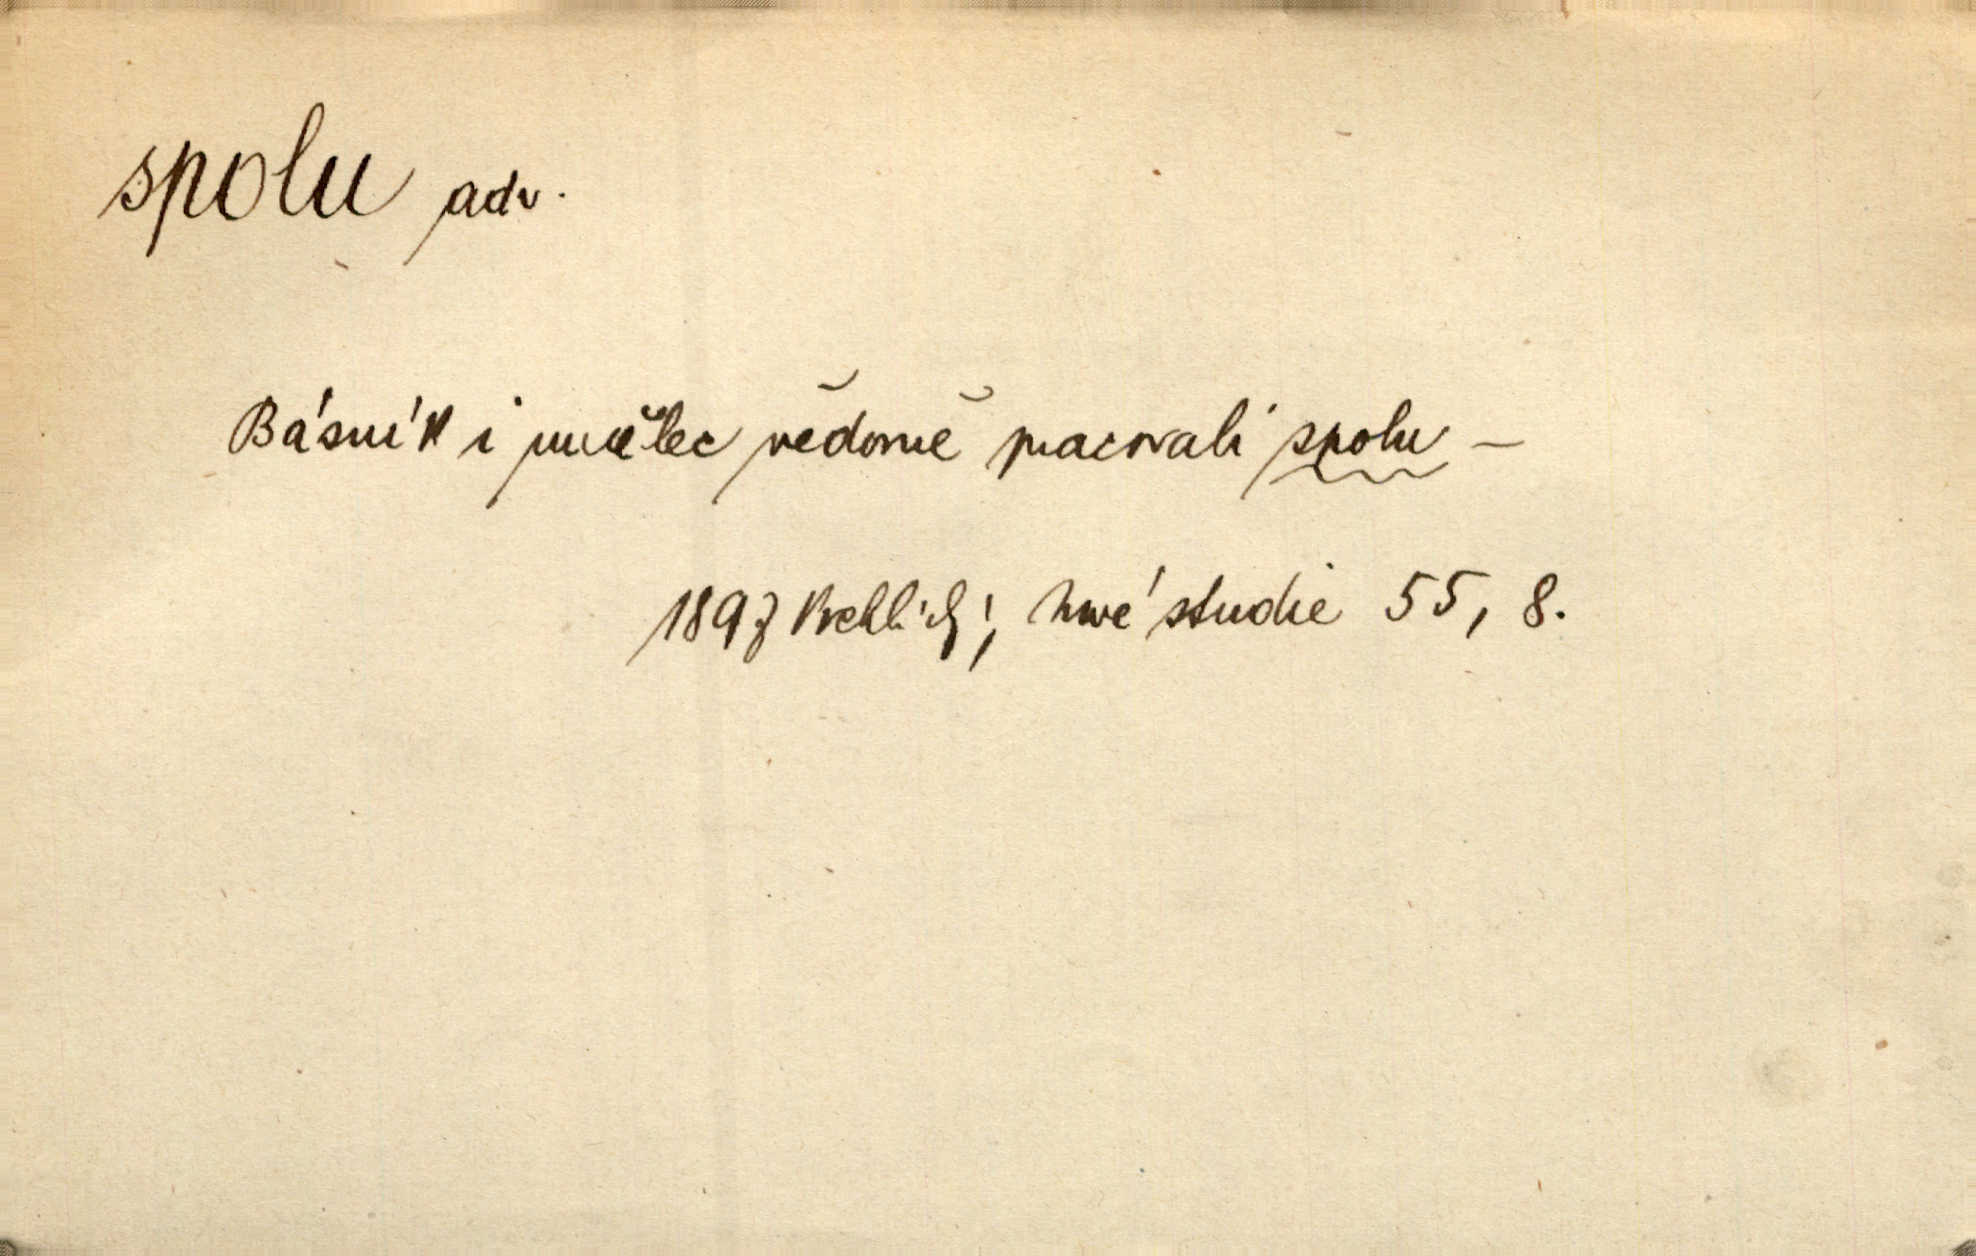 spolu adv.
Básník i umělec vědomě pracovali spolu –
1897 Vrchlický, Nové studie 55, 8.